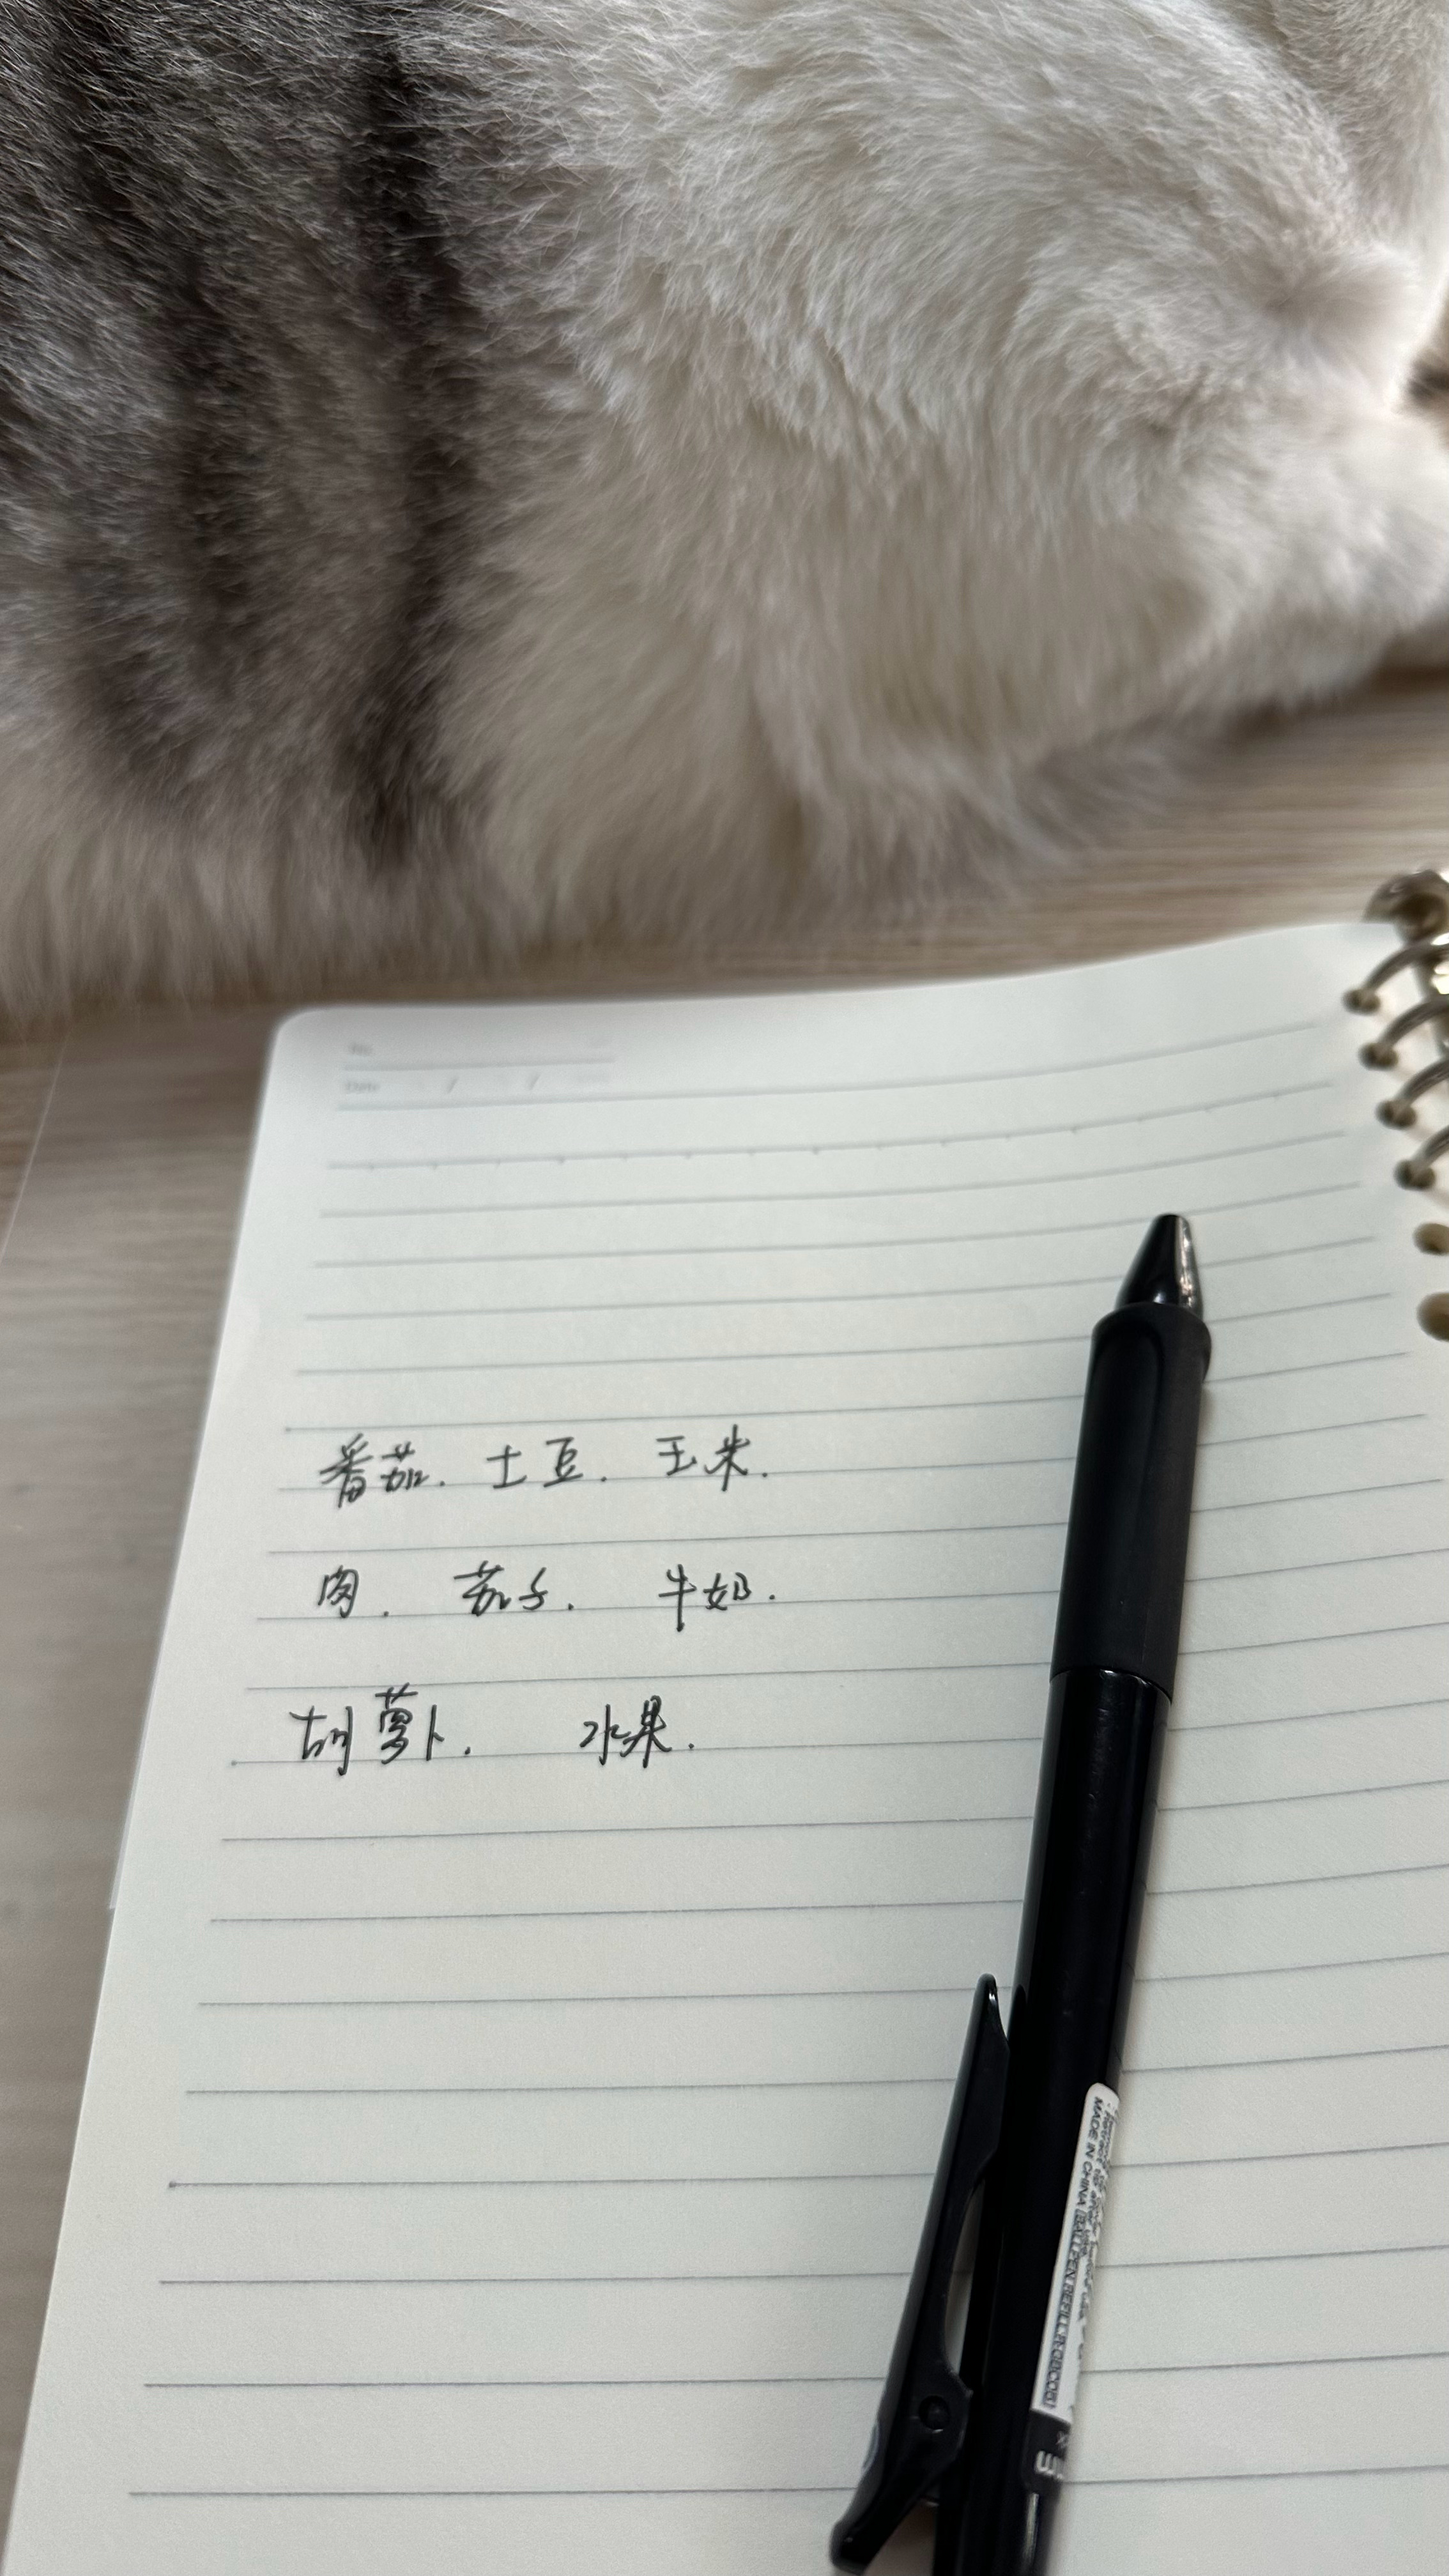 No.
Date / /
番茄. 土豆. 玉米.
肉. 茄子. 牛奶.
胡萝卜. 水果.
MADE IN CHINA